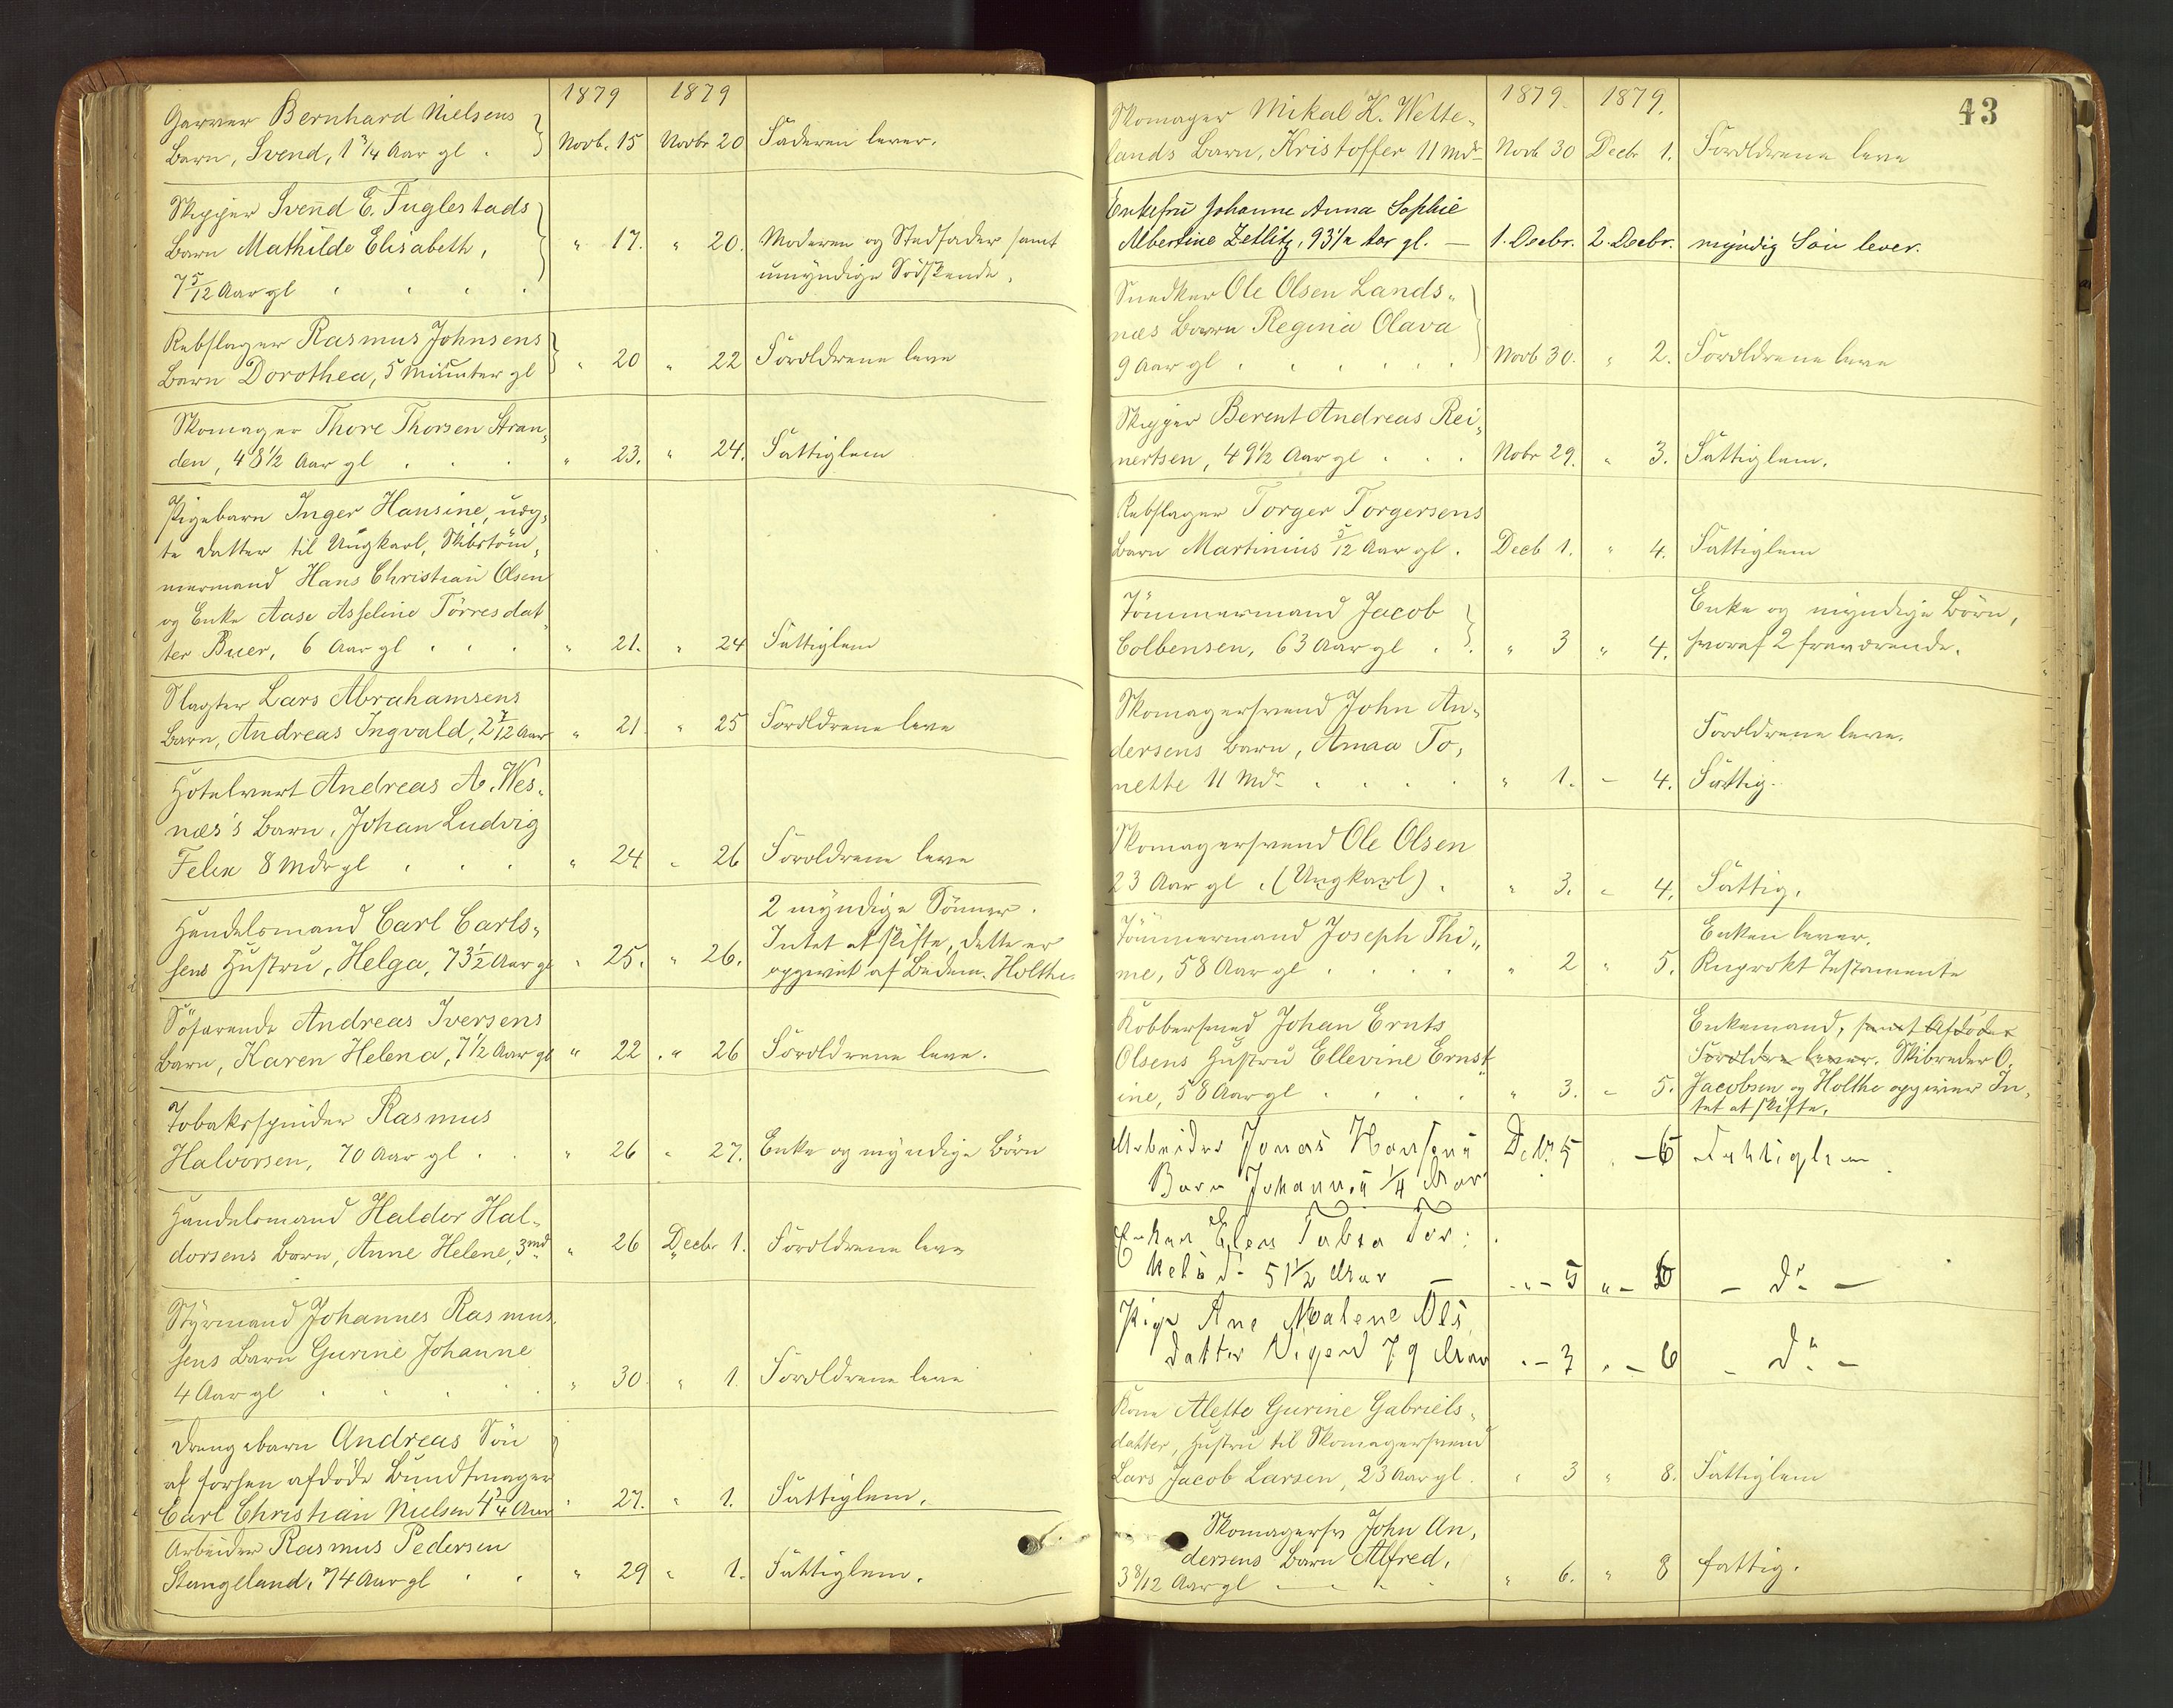 1879 1879
Garver Bernhard Nielsens
Barn, Svend, 1 3/4 Aar gl. Novb. 15 Novbr 20 Faderen lever.
Skipper Svend E. Fuglestads
Barn Mathilde Elisabeth, " 17. " 20. Moderen og Stedfader samt
7 5/12 Aar gl umyndige Södskende.
Rebslager Rasmus Johnsens
Barn Dorothea, 5 Minuter gl " 20 " 22 Forældrene leve
Skomager Thore Thorsen Stran„
den, 48 1/2 Aar gl " 23. " 24. Fattiglem
Pigebarn Inger Hansine, uæg„
te Datter til Ungkarl, Skibstöm„
mermand Hans Christian Olsen
og Enke Aase Asseline Törresdat„
ter Buer, 6 Aar gl " 21. " 24 Fattiglem
Slagter Lars Abrahamsens
Barn, Andreas Ingvald, 2 7/12 Aar " 21 " 25 Forældrene leve
Hotelvert Andreas A. Wes„
næs's Barn, Johan Ludvig
Felix 8 Mdr gl " 24 " 26 Forældrene leve
2 myndige Sönner.
Handelsmand Carl Carls„ Intet at skifte, dette er
sens Hustru, Helga, 73 1/2 Aar gl " 25. " 26. opgivet af Bedem. Holthe.
Söfarende Andreas Iversens
Barn, Karen Helena, 7 1/2 Aar gl " 22 " 26 Forældrene leve.
Tobakspinder Rasmus
Halvorsen, 70 Aar gl " 26 " 27. Enke og myndige Börn
Handelsmand Haldor Hal„
dorsens Barn, Anne Helene, 3 md " 26 Decbr 1. Forældrene leve
Styrmand Johannes Rasmus„
sens Barn Gurine Johanne
4 Aar gl " 30 " 1. Forældrene leve
Drengebarn Andreas Sön
af forhen afdöde Bundtmager
Carl Christian Nielsen 4 3/4 Aar " 27. " 1. Fattiglem.
Arbeider Rasmus Pedersen
Stangeland, 74 Aar gl " 29 " 1. Fattiglem.
43
1879. 1879.
Skomager Mikal K. Wette„
lands Barn, Kristoffer 11 Mdr Novb 30 Decbr 1. Forældrene leve
Enkefru Johanne Anna Sophie
Albertine Zetlitz, 93 1/2 Aar gl. — 1. Decbr. 2. Decbr. myndig Sön lever.
Snedker Ole Olsen Lands„
næs Barn Regina Olava
9 Aar gl Novb 30. " 2. Forældrene leve
Skipper Berent Andreas Rei„
nertsen, 49 1/2 Aar gl Nobr 29. " 3. Fattiglem.
Rebslager Torger Torgersens
Barn Martinius 5/12 Aar gl. Decb 1. " 4. Fattiglem
Tömmermand Jacob Enke og myndige Börn,
Colbensen, 63 Aar gl " 3 " 4. hvoraf 2 fraværende.
Skomagersvend John An„
dersens Barn, Anna To„ Forældrene leve.
nette 11 Mdr " 1. " 4. Fattig.
Skomagersvend Ole Olsen
23 Aar gl. (Ungkarl). " 3. " 4. Fattig.
Tömmermand Joseph Thi„ Enken lever.
me, 58 Aar gl " 2 " 5. Testamente
Kobbersmed Johan Ernts Enkemand, samt Afdödes
Olsens Hustru Ellevine Ernst„ Forældre lever. Skibsreder O.
ine, 58 Aar gl " 3. " 5. Jacobsen og Holthe opgiver In„
tet at skifte.
Arbeider Jonas Hansens Decbr 5 " 6 Fattiglem
Barn 1/4 Aar
Enken Elen Tabea Tor:
kelsd. 51 1/2 Aar — " - 5 " - 6 - do -
Pige Ane Malene Ols
datter 79 Aar " - 3 " - 6 - do -
Kone Alette Gurine Gabriels„
datter, Hustru til Skomagersvend
Lars Jacob Larsen, 23 Aar gl. " 3 " 8. Fattiglem
Skomagersv John An„
dersens Barn Alfred,
3 8/12 Aar gl " 6. " 8 fattig.